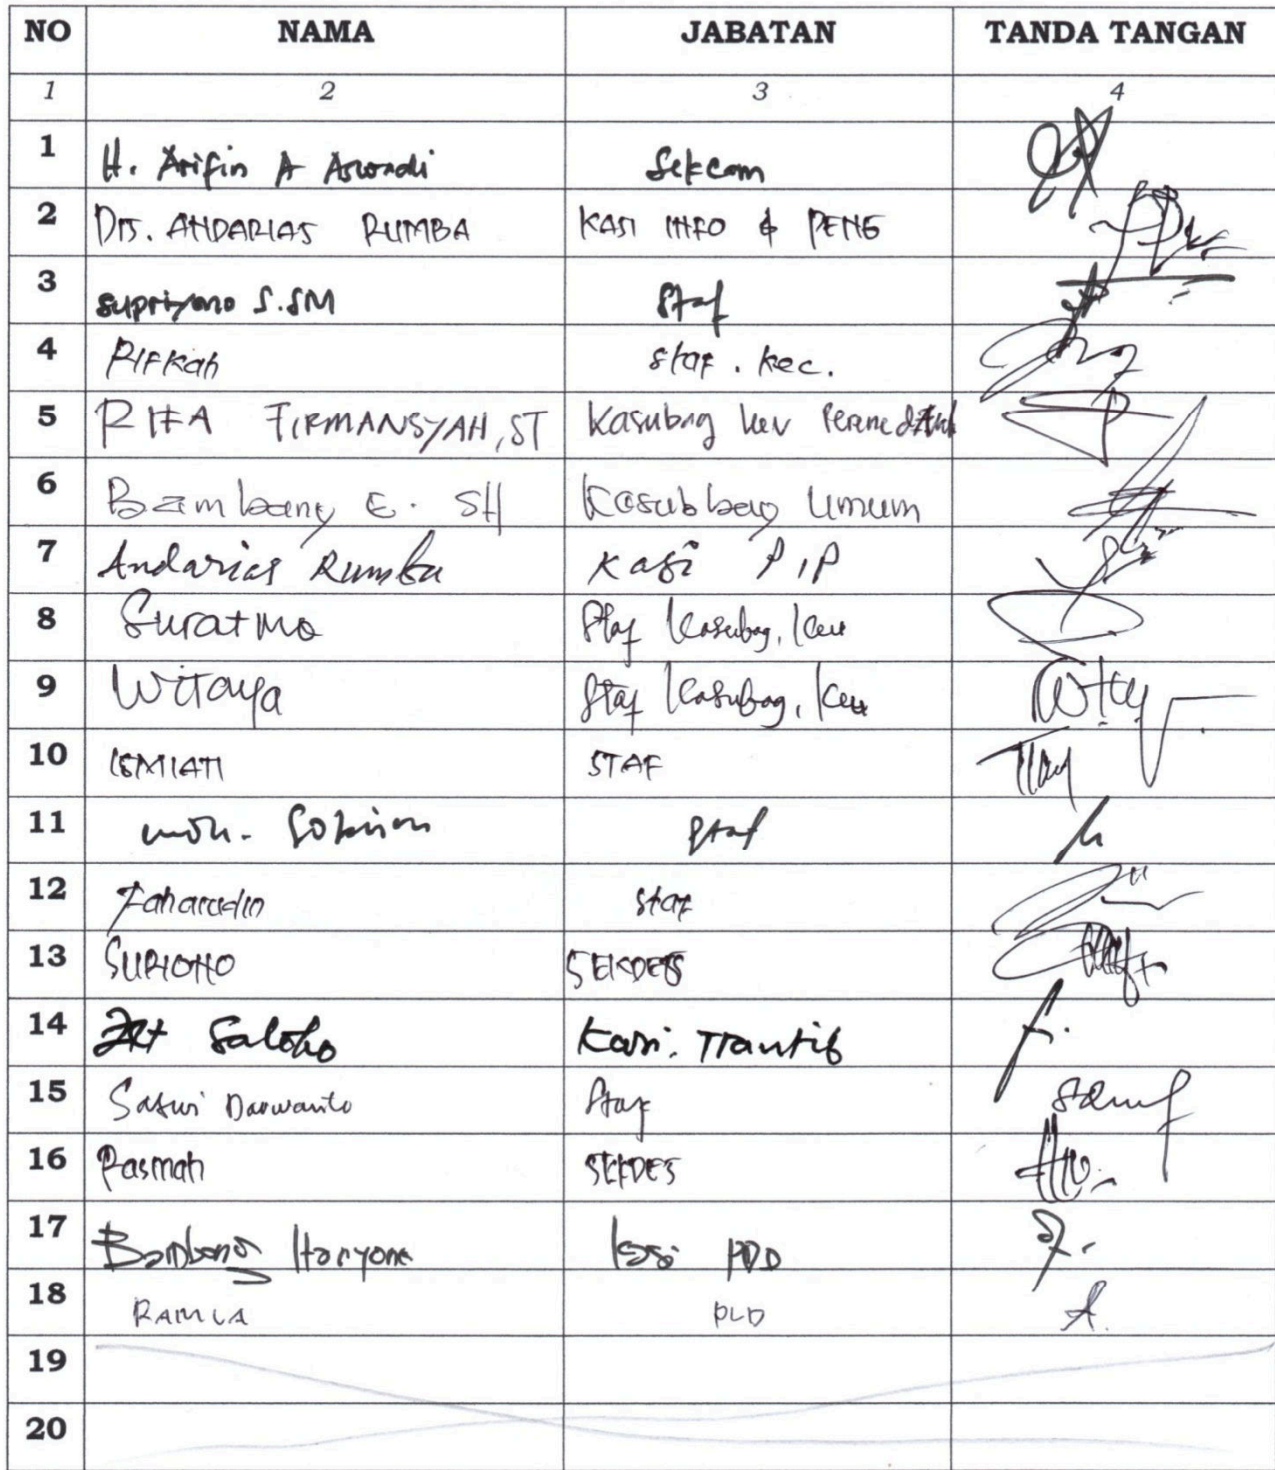 NO NAMA JABATAN TANDA TANGAN
1 2 3 4
1 H. Arifin A Sekcam
2 Drs. ANDARIAS RUMBA KASI INFO & PENG
3 Supriyono S.SM Staf
4 RIFKah staf. kec.
5 RIFA FIRMANSYAH, ST Kasubag kev
6 Bambang E. SH Kasubbag Umum
7 Andarias Rumba Kasi PIP
8 Suratmo Staf Kasubag, Keu
9 Witaya Staf Kasubag, Keu
10 ISMIATI STAF
11 moh. Staf
12 Faharudin staf
13 SURIONO SEKDES
14 Saleho Kasi. Trantib
15 Saswi Darwanto Staf
16 Rasmah SEKDES
17 Bambang Haryono kasi PDD
18 RAMLA PLD
19
20